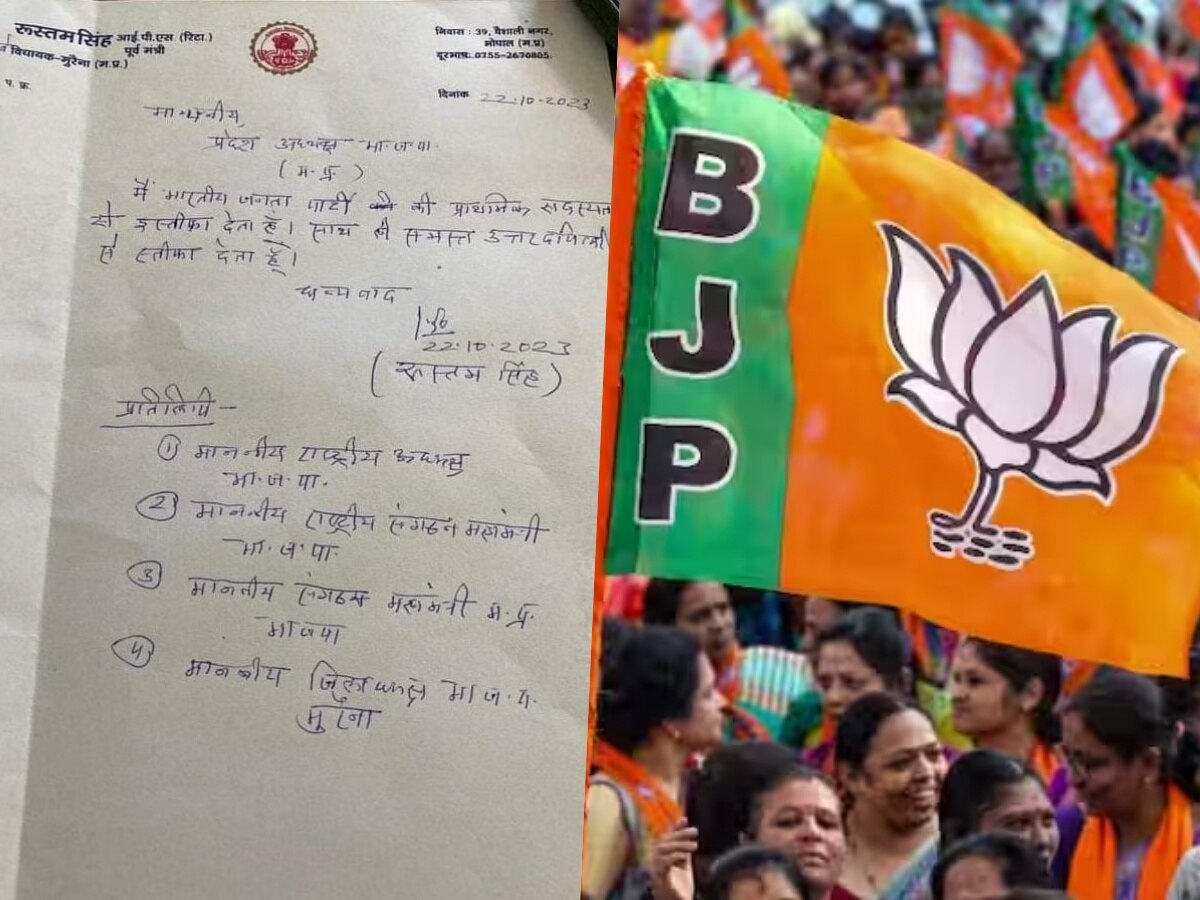 रूस्तम सिंह आई.पी.एस (रिटा.)
पूर्व मंत्री
विधायक-मुरैना (म.प्र.)
प. क्र.
निवास : 39, वैशाली नगर,
भोपाल (म.प्र)
दूरभाष: 0755-2670805.
दिनांक 22.10.2023
माननीय,
प्रदेश अध्यक्ष भा.ज.पा.
(म.प्र.)
मैं भारतीय जनता पार्टी की प्राथमिक सदस्यता
से इस्तीफा देता हूं। साथ ही समस्त
से स्तीफा देता हूँ।
धन्यवाद
22.10.2023
(रूस्तम सिंह)
प्रतिलिपि -
① माननीय राष्ट्रीय अध्यक्ष
भा.ज.पा.
② माननीय राष्ट्रीय संगठन महामंत्री
भा.ज.पा
③ माननीय संगठन महामंत्री म.प्र.
भाजपा
④ माननीय जिलाध्यक्ष भा.ज.प.
मुरैना
BJP